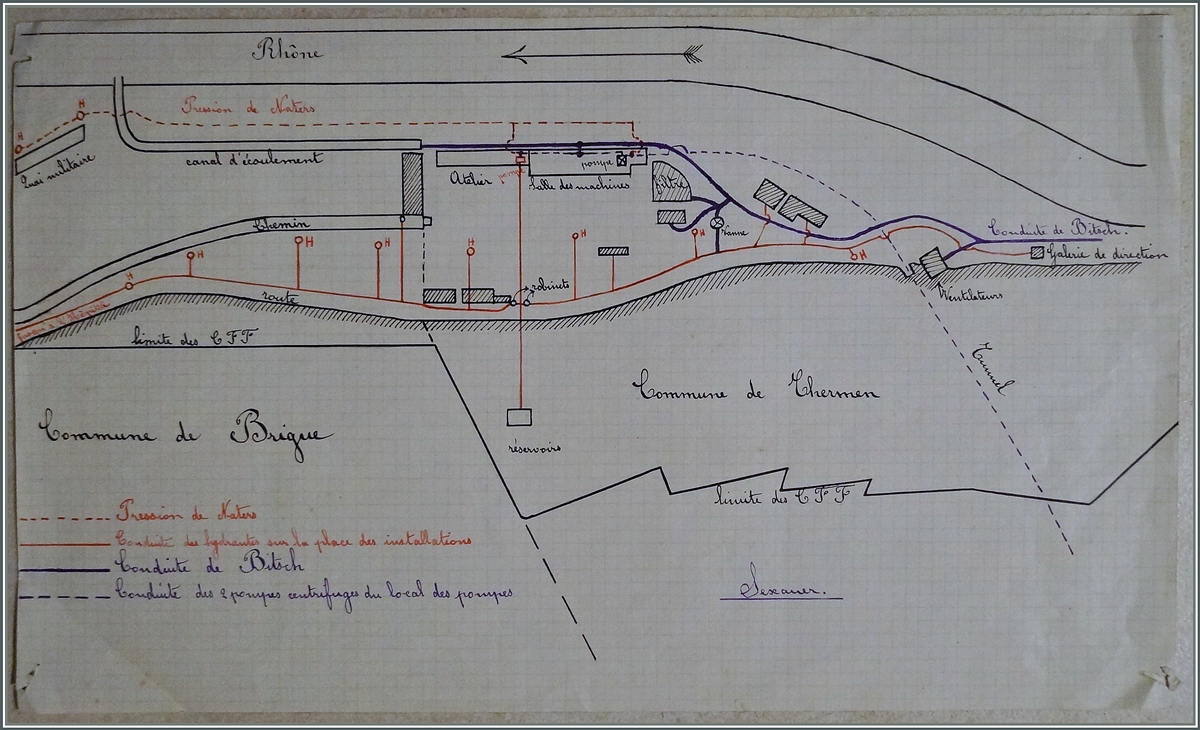 Rhône
H
H
Pression de Naters
Quai militaire
canal d'écoulement
Atelier
pompe
pompe
Salle des machines
filtre
Vanne
Chemin
H
H
H
H
H
H
H
H
Conduite de Bitsch.
Galerie de direction
Ventilateurs
robinets
route
limite des CFF
Tunnel
Commune de Thermen
Commune de Brigue
réservoirs
limite des CFF
Pression de Naters
Conduite des hydrantes sur la place des installations
Conduite de Bitsch
Conduite des 2 pompes centrefuges du local des pompes
Sexauer.